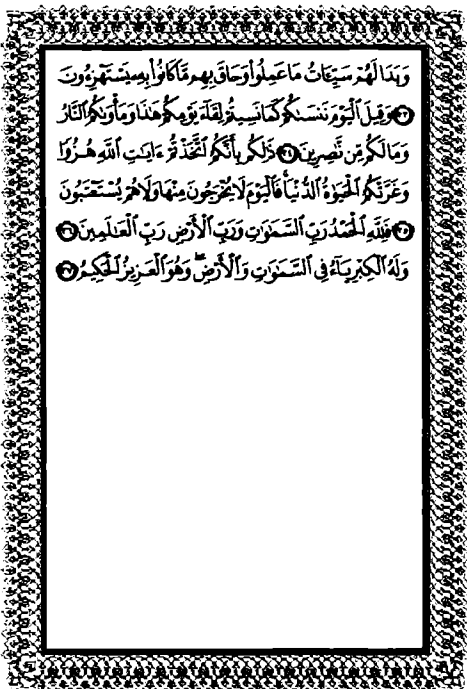 وَبَدَا لَهُمْ سَيِّئَاتُ مَا عَمِلُوا۟ وَحَاقَ بِهِم مَّا كَانُوا۟ بِهِۦ يَسْتَهْزِءُونَ
﴿٣٣﴾ وَقِيلَ ٱلْيَوْمَ نَنسَىٰكُمْ كَمَا نَسِيتُمْ لِقَآءَ يَوْمِكُمْ هَٰذَا وَمَأْوَىٰكُمُ ٱلنَّارُ
وَمَا لَكُم مِّن نَّٰصِرِينَ ﴿٣٤﴾ ذَٰلِكُم بِأَنَّكُمُ ٱتَّخَذْتُمْ ءَايَٰتِ ٱللَّهِ هُزُوًا
وَغَرَّتْكُمُ ٱلْحَيَوٰةُ ٱلدُّنْيَا ۚ فَٱلْيَوْمَ لَا يُخْرَجُونَ مِنْهَا وَلَا هُمْ يُسْتَعْتَبُونَ
﴿٣٥﴾ فَلِلَّهِ ٱلْحَمْدُ رَبِّ ٱلسَّمَٰوَٰتِ وَرَبِّ ٱلْأَرْضِ رَبِّ ٱلْعَٰلَمِينَ ﴿٣٦﴾
وَلَهُ ٱلْكِبْرِيَآءُ فِى ٱلسَّمَٰوَٰتِ وَٱلْأَرْضِ ۖ وَهُوَ ٱلْعَزِيزُ ٱلْحَكِيمُ ﴿٣٧﴾